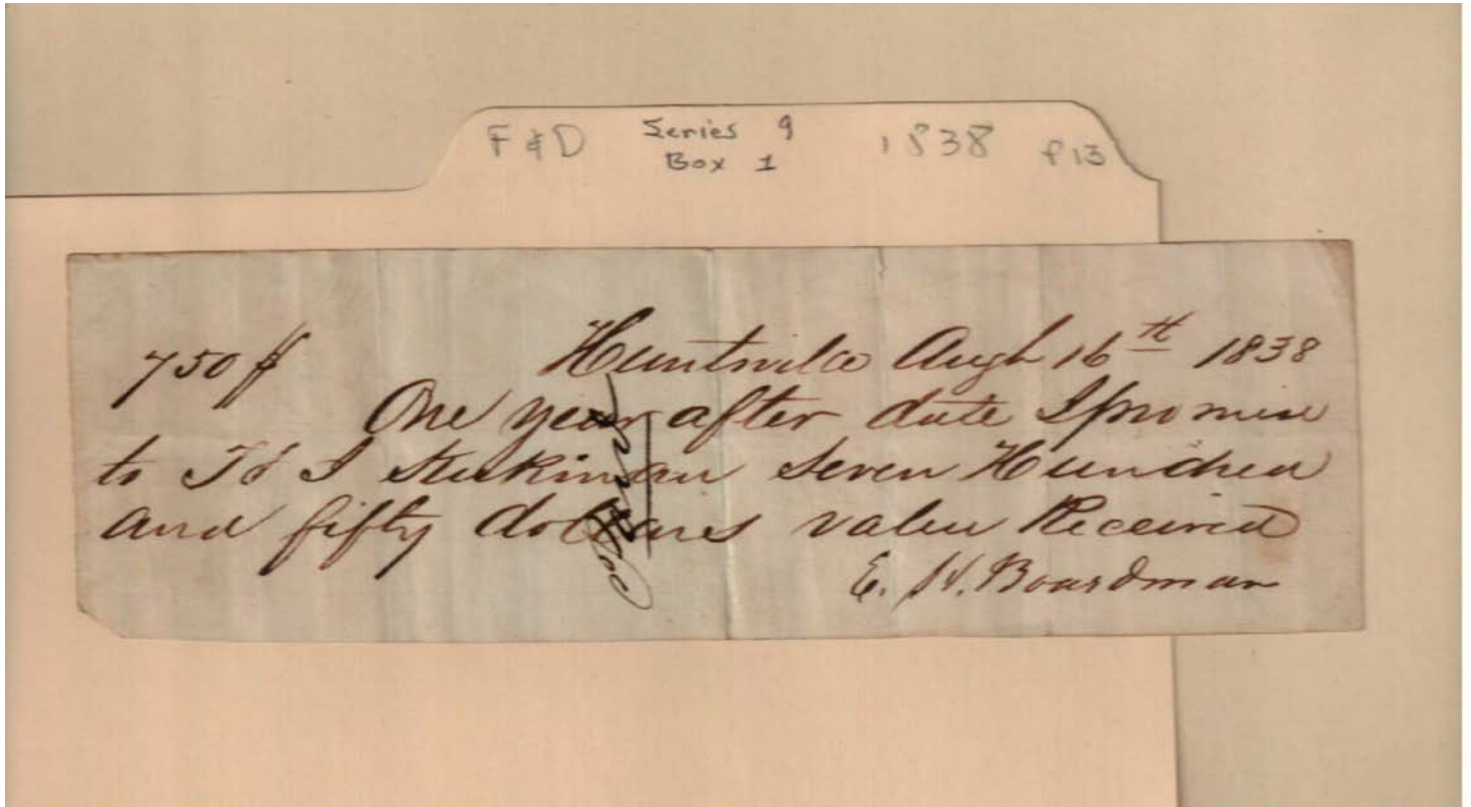 F & D Series 9 1838 f 13
Box 1
750 $ Huntsvile Augt 16th 1838
One year after date I promise
to seven Hundred
and fifty dollars value Received
E. H. Boardman